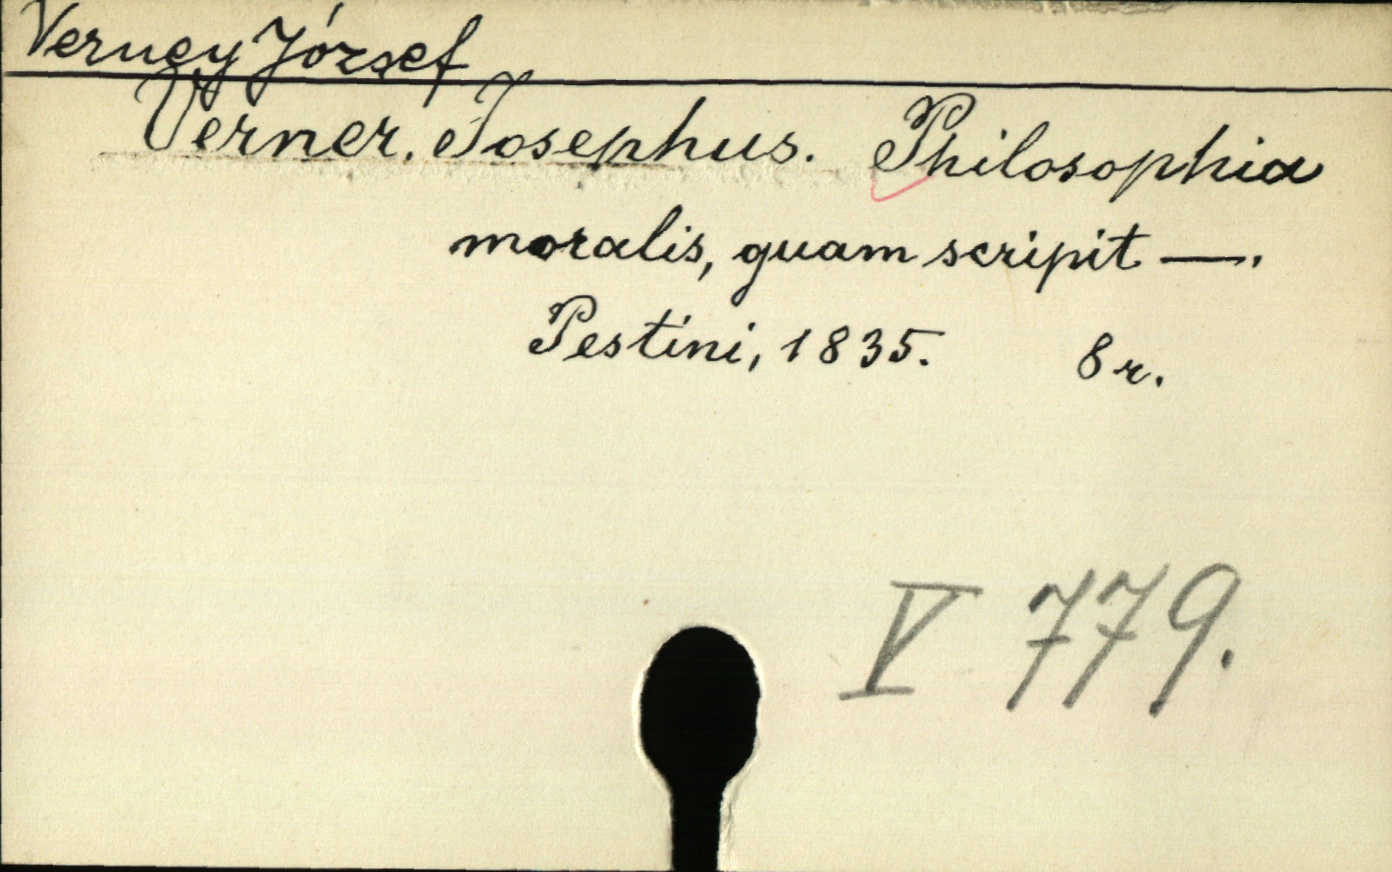 Verney József
Verner, Josephus. Philosophia
moralis, quam scripit —.
Pestini, 1835. 8r.
V 779.